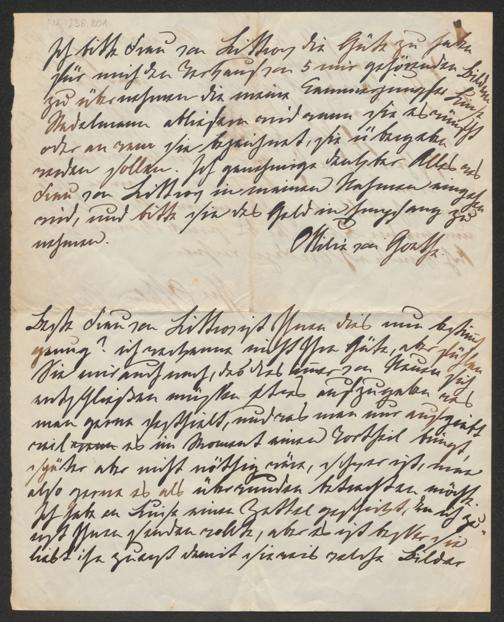 Ich bitte Frau von Littrow die Güte zu haben
für mich den Verkauf von 5 mir gehörenden Bildern
zu übernehmen die meine Kammerjungfer Luise
Nadelmann abliefern wird wenn sie es wünscht
oder an wen sie bezeichnet, sie übergeben
werden sollen. Ich genehmige Alles was
Frau von Littrow in meinem Nahmen eingehen
wird, und bitte sie das Geld in Empfang zu
nehmen.
Ottilie von Goethe.
Beste Frau von Littrow ist Ihnen dies nun bestimmt
genug? ich verkenne nicht Ihre Güte, aber fühlen
Sie mir auch nach, daß dies von Neuem sich
entschließen müssen etwas aufzugeben was
man gerne festhielt, und was man nur aufgiebt
weil es im Moment einen Vortheil bringt
später aber nicht nöthig wäre, schwer ist, man
also gerne es als überwunden betrachten möchte.
Ich habe an Luise einen Zettel geschickt, den ich zu-
erst Ihnen senden wollte, aber es ist besser sie
ließt ihn zuerst damit sie weis welche Bilder